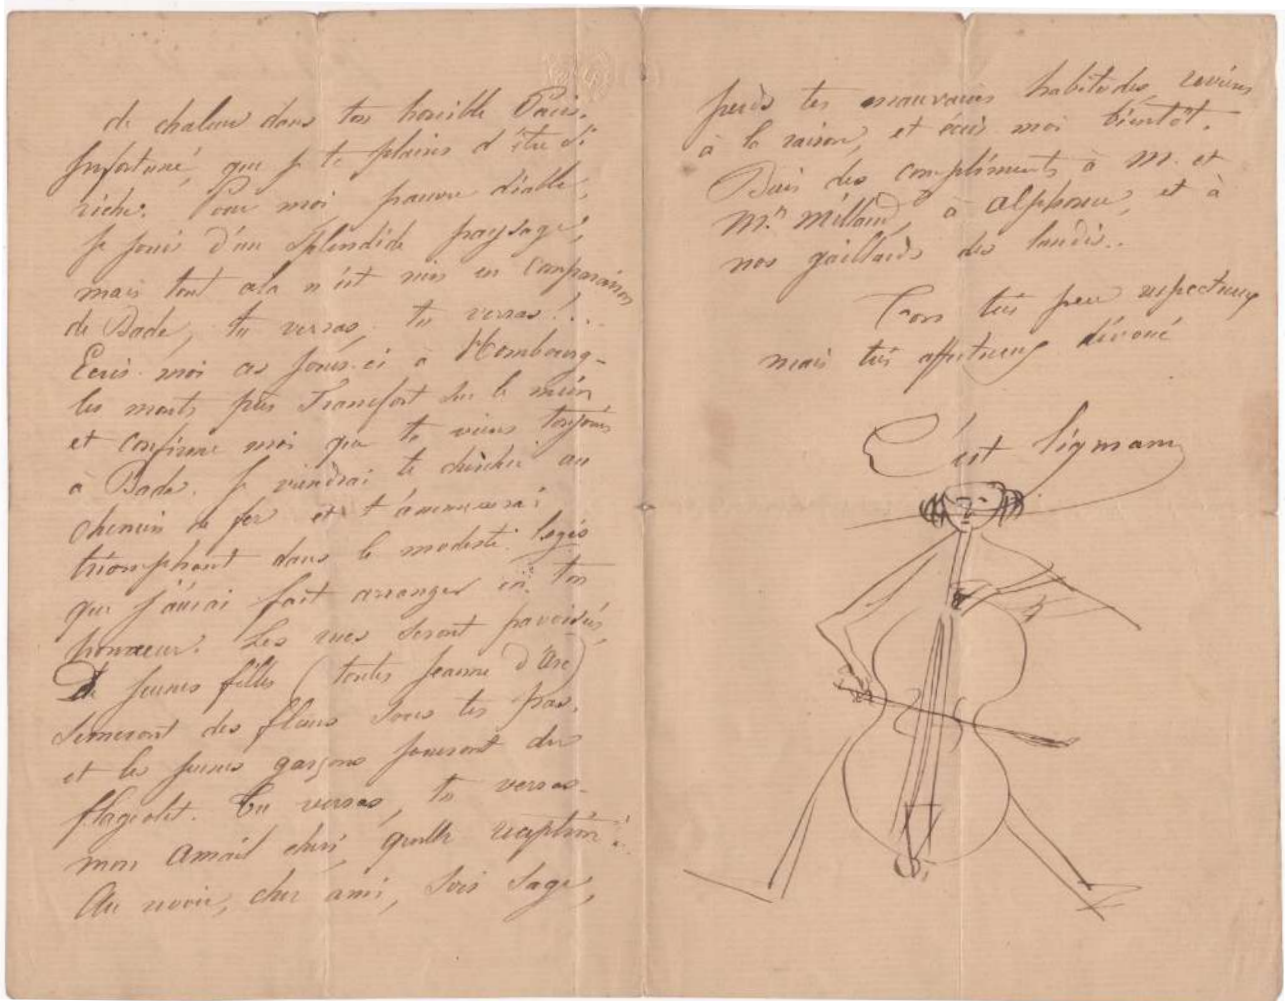 de chaleur dans ton horrible Paris.
Infortuné, que je te plains d'être si
riche. Pour moi pauvre diable,
je jouis d'un splendide paysage,
mais tout cela n'est rien en comparaison
de Bade, tu verras, tu verras!...
Ecris-moi ces jours-ci à Hombourg-
les monts près Francfort sur le mein
et confirme moi que tu viens toujours
à Bade. Je viendrai te chercher au
chemin de fer et t'ammenerai
triomphant dans le modeste logis
que j'aurai fait arranger en ton
honneur. Les rues seront pavoisées,
De jeunes filles (toutes Jeanne d'Arc)
semeront des fleurs sous tes pas.
et les jeunes garçons joueront du
flageolet. Tu verras, tu verras-
mon chéri, quelle réception!..
Au revoir, cher ami, sois sage,
perds tes mauvaises habitudes, reviens
à la raison, et écris moi bientôt.
Bien des compliments à M. et
Me Millaud, à Alphonse, et à
nos gaillards des lundis..
Ton très peu respectueux
mais très affectueux dévoué
C'est Sigmann